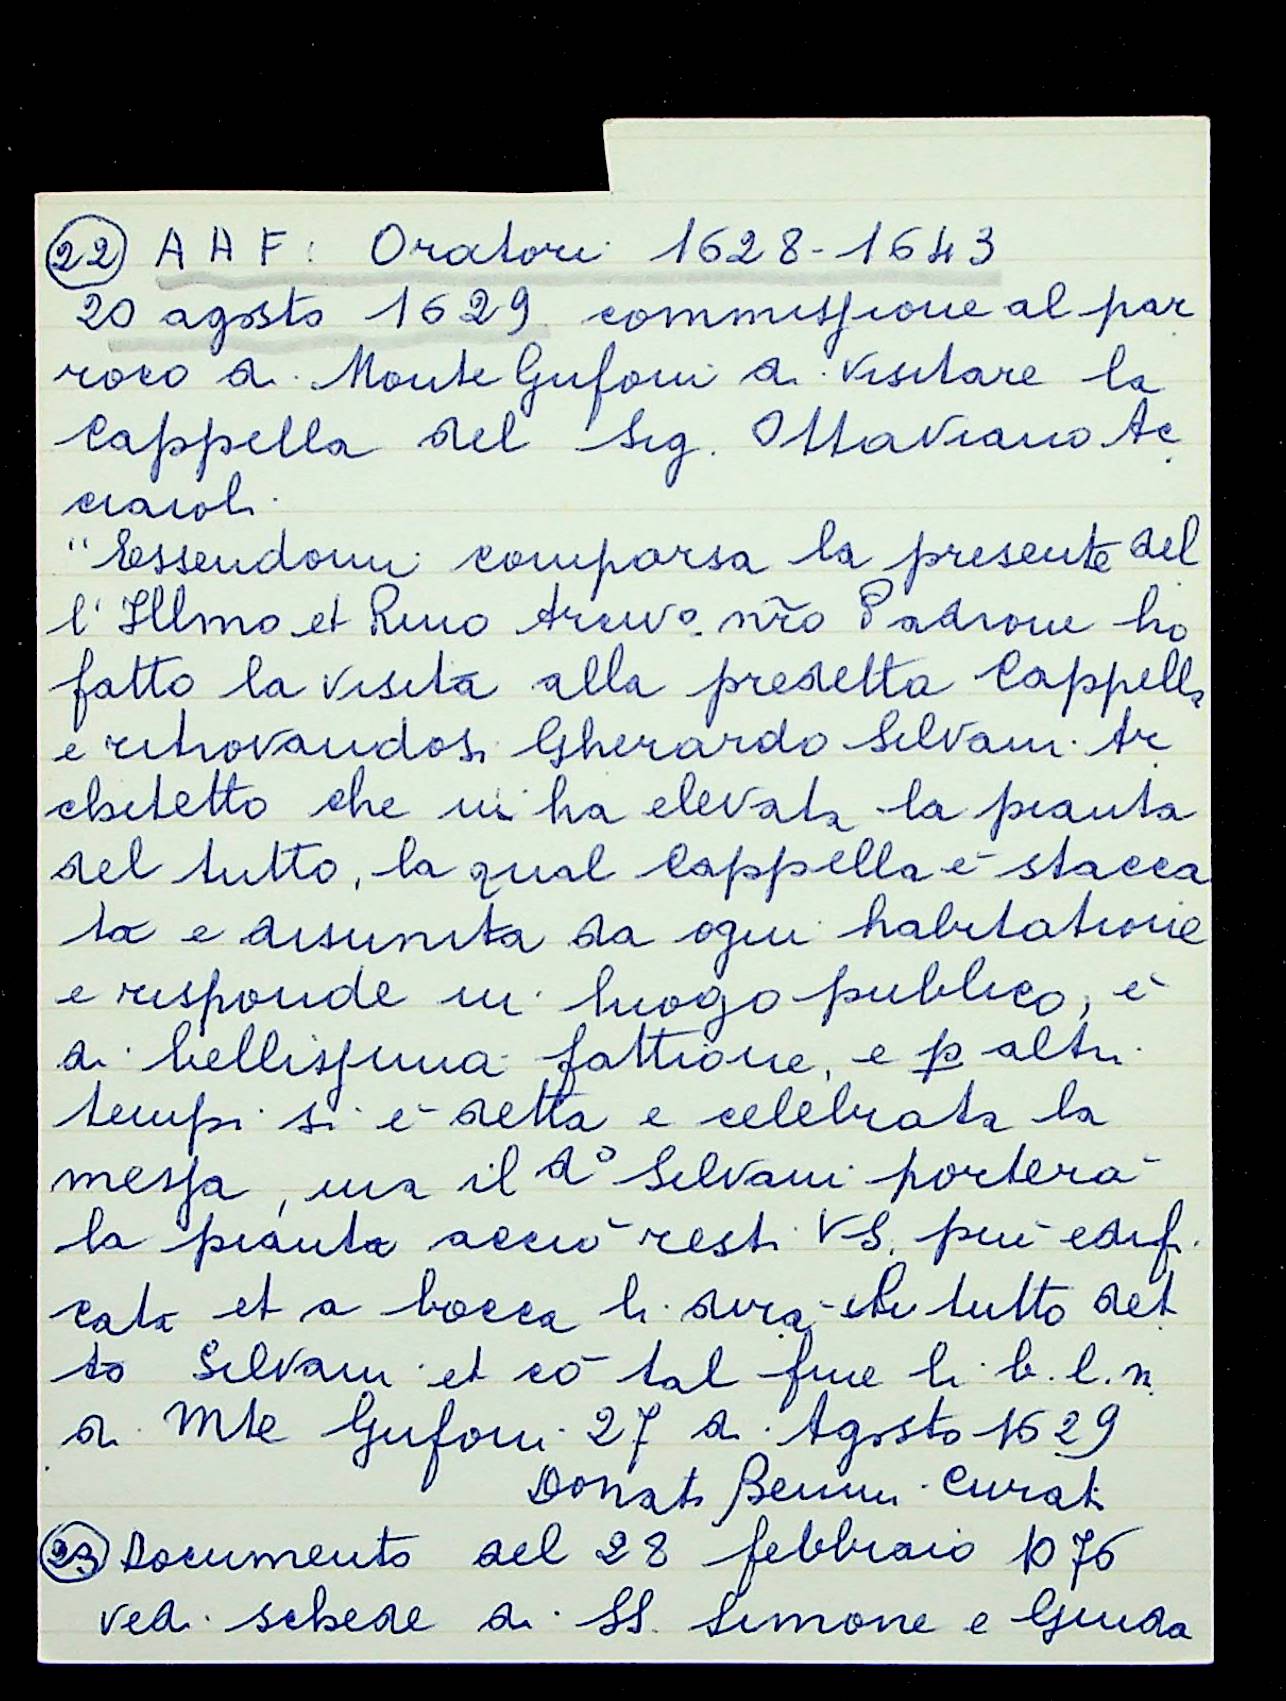 22 A A F: Oratori 1628-1643
20 agosto 1629 commissione al par
roco di Monte Gufoni di visitare la
Cappella del Sig. Ottaviano Ac
ciaioli.
"Eessendomi comparsa la presente del
l'Illmo et Rmo Arcivo. nr̃o Padrone ho
fatto la visita alla predetta Cappella
e ritrovandosi Gherardo Silvani Ar
chitetto che mi ha elevata la pianta
del tutto, la qual Cappella è stacca
ta e disunita da ogni habitatione
e risponde in luogo publico, è
di bellissima fattione, e p altri
tempi si è detta e celebrata la
messa, ma il d° Silvani porterà
la pianta acciò resti VS. più edifi
cata et a bocca li dirà il tutto det
to Silvani et cō tal fine li b. l. m.
di Mte Gufoni 27 di Agosto 1629
Donati Benini Curati
23 Documento del 28 febbraio 1076
vedi schede di SS. Simone e Giuda